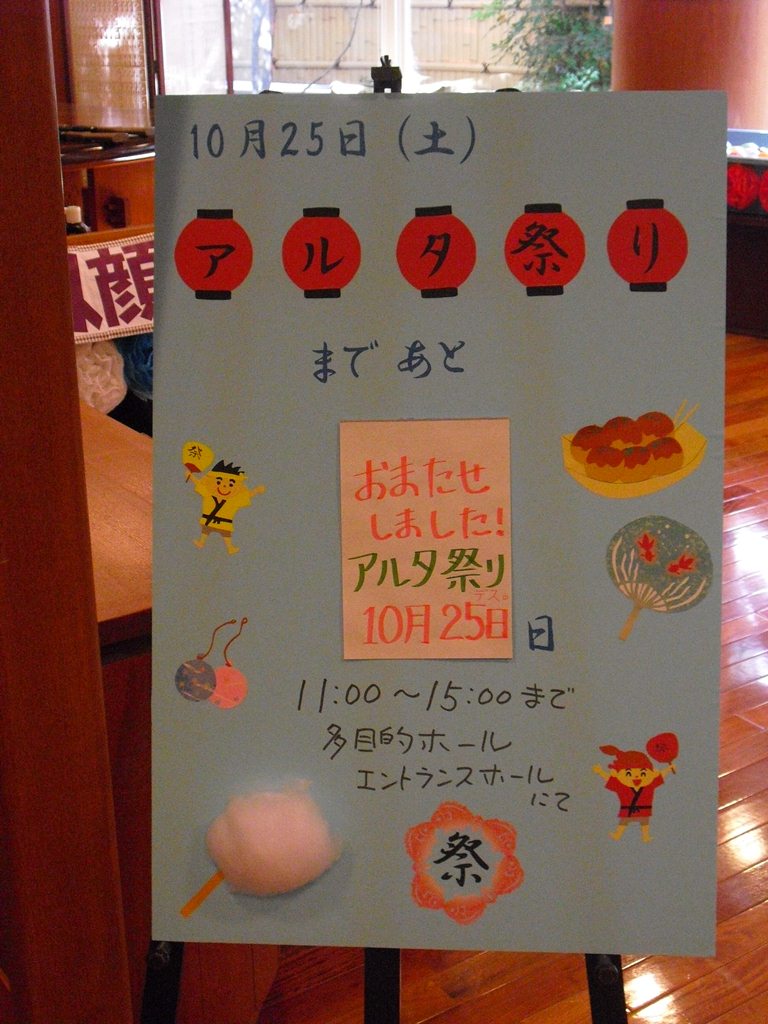 10月25日(土)
アルタ祭り
まであと
おまたせ
しました!
アルタ祭り
デス。
10月25日
日
11:00～15:00まで
多目的ホール
エントランスホール
にて
祭
祭
顔